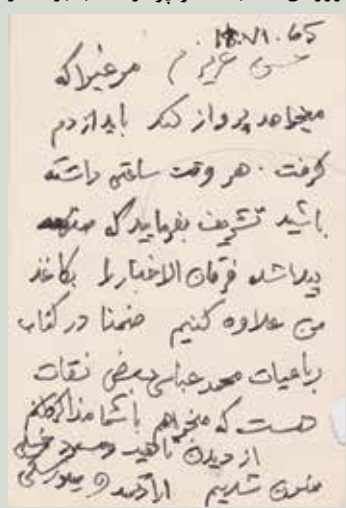 18.VI.65
حسن عزیزم مرغیرا که
میخواهد پرواز کند باید از دم
گرفت. هر وقت ساعتی داشته
باشید تشریف بفرمایید که
پیدا شده فرمان الاخبار را بکاغذ
من علاوه کنیم ضمنا در کتاب
رباعیات محمد عباسی بعضی نقات
هست که میخواهم با شما مذاکره کنم
از دیدن ناهید و مسعود خیلی
ممنون شدیم ارادتمند